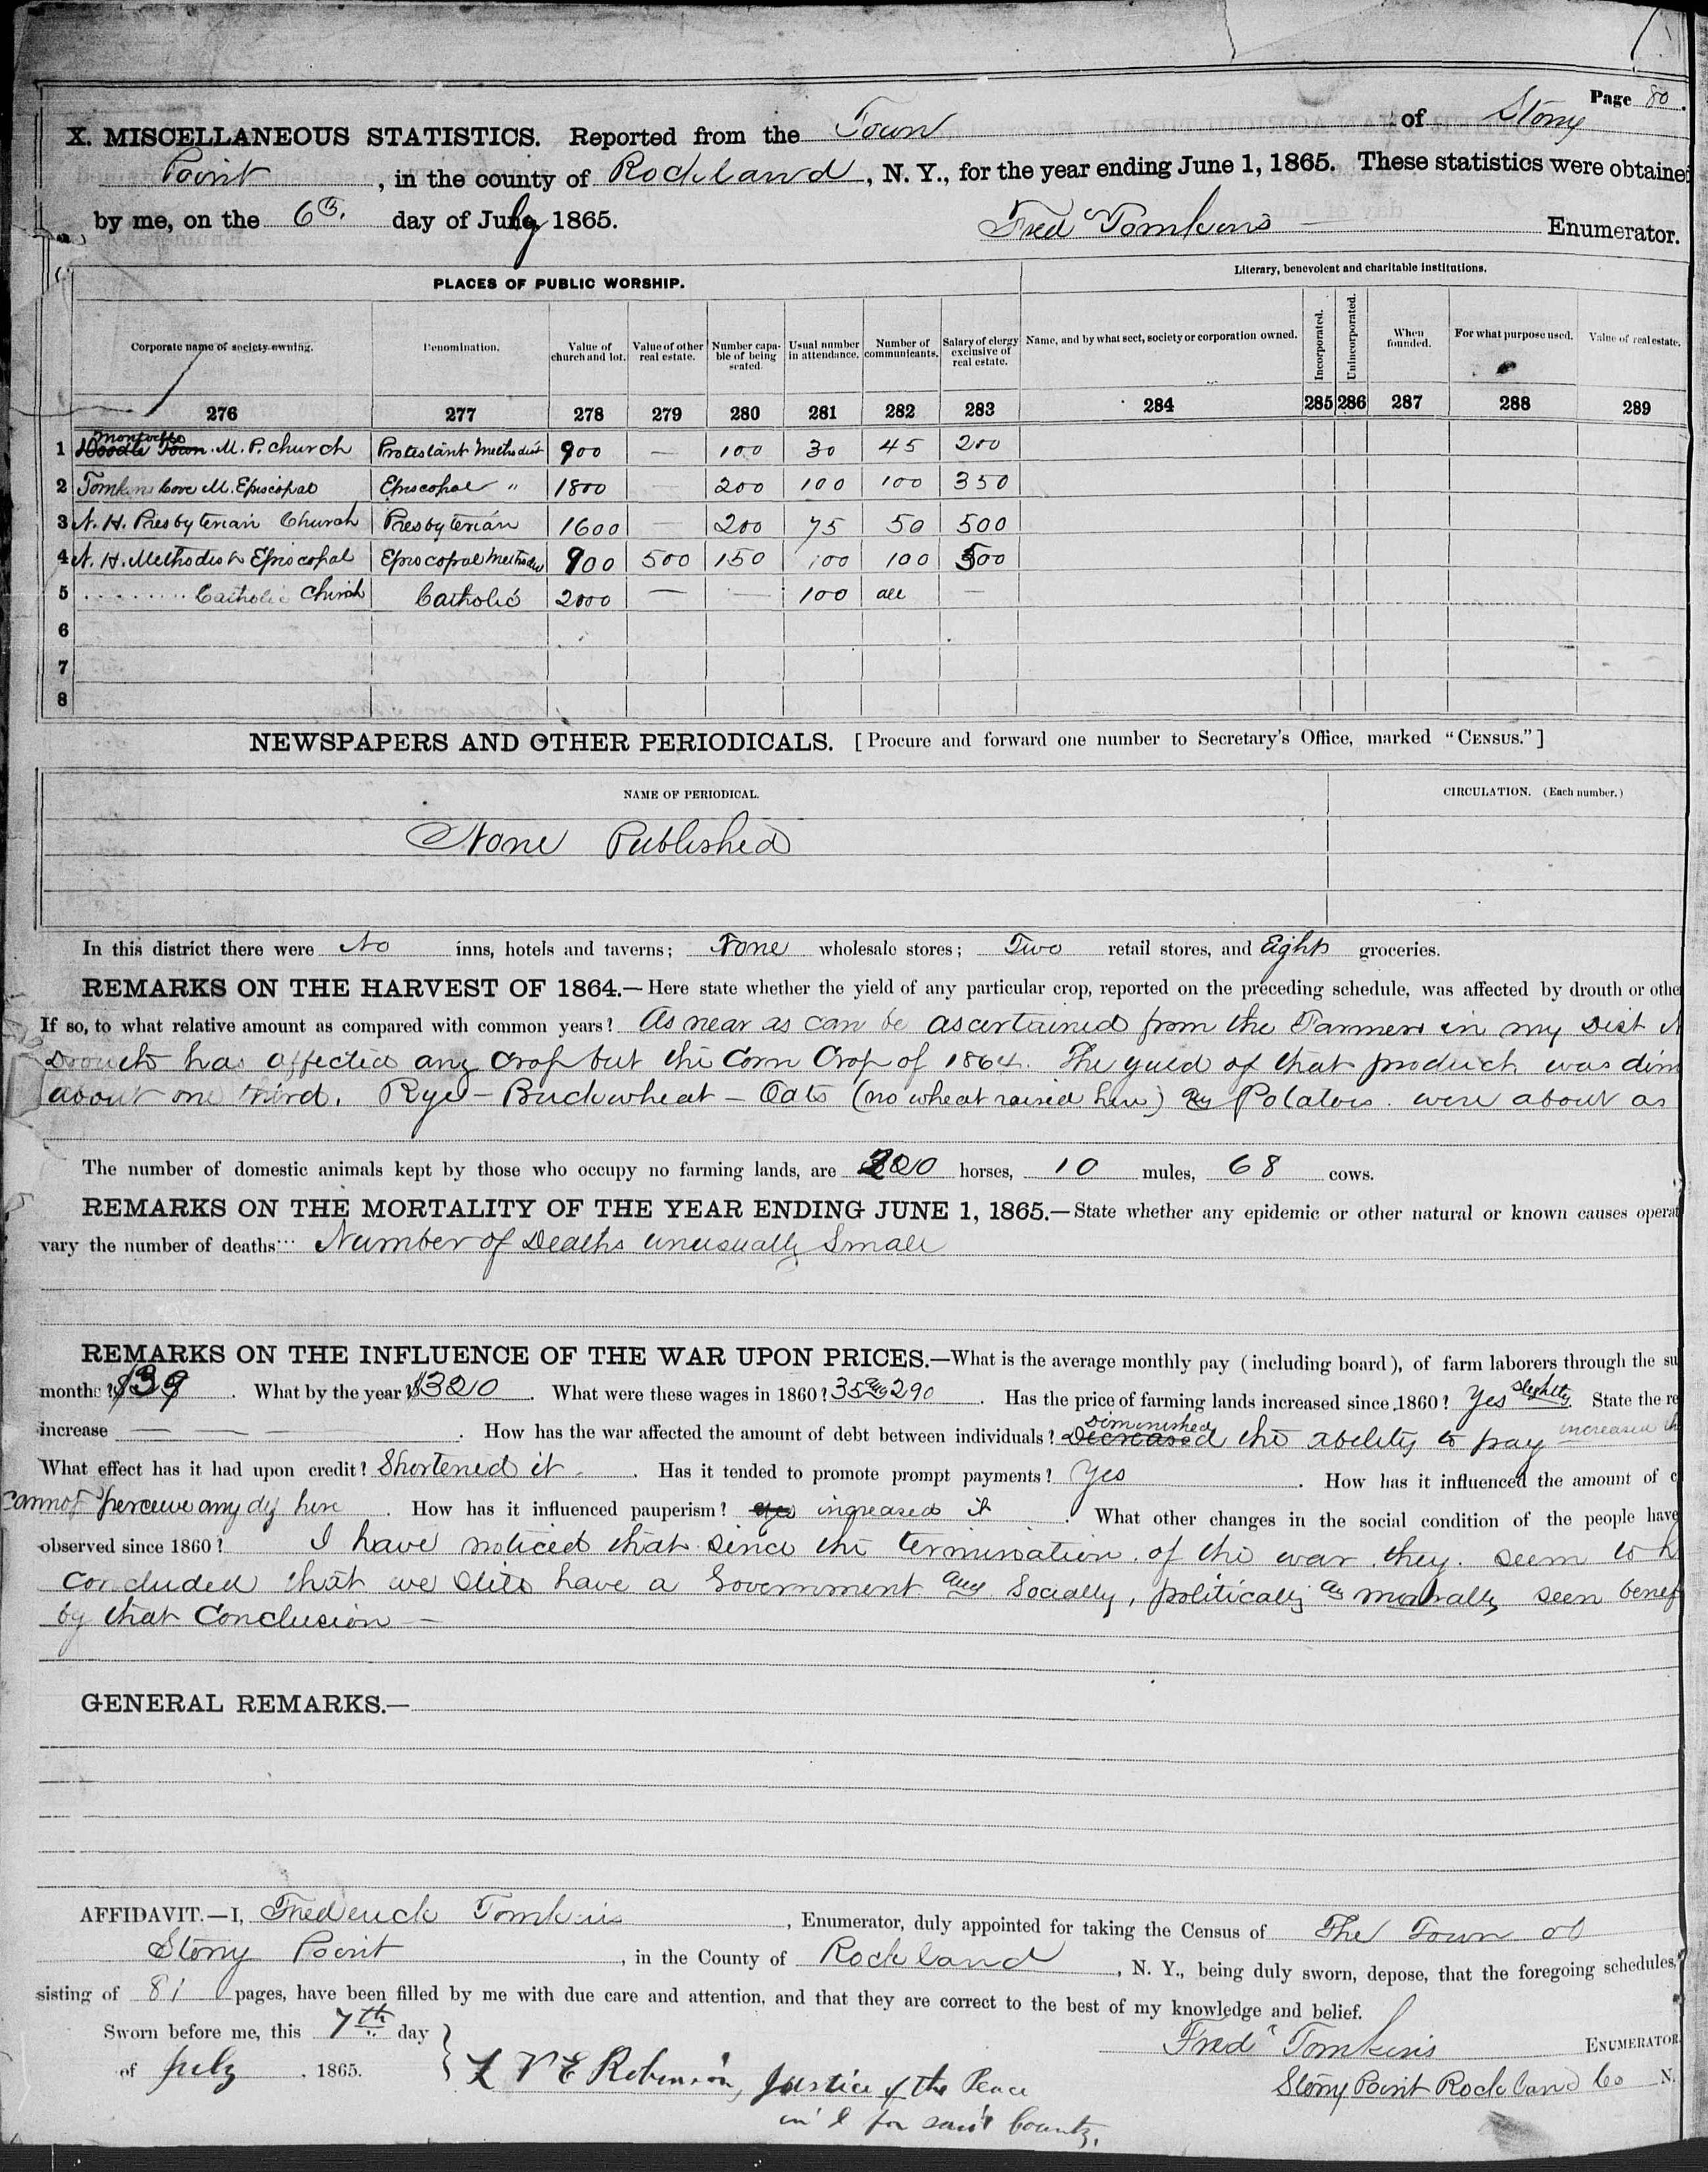 Page 80.
X. MISCELLANEOUS STATISTICS. Reported from the Town of Stony
Point, in the county of Rockland, N. Y., for the year ending June 1, 1865. These statistics were obtained
by me, on the 6th. day of July 1865. Fredk Tomkins Enumerator.
PLACES OF PUBLIC WORSHIP. Literary, benevolent and charitable institutions.
Corporate name of society owning. Denomination. Value of church and lot. Value of other real estate. Number capable of being seated. Usual number in attendance. Number of communicants. Salary of clergy exclusive of real estate. Name, and by what sect, society or corporation owned. Incorporated. Unincorporated. When founded. For what purpose used. Value of real estate.
276 277 278 279 280 281 282 283 284 285 286 287 288 289
1 Doodle Town Montville M. P. Church Protestant Methodist 900 — 100 30 45 200
2 Tomkins Cove M. Episcopal Episcopal " 1800 — 200 100 100 350
3 N. H. Presbyterian Church Presbyterian 1600 — 200 75 50 500
4 N. H. Methodist Episcopal Episcopal Methodist 900 500 150 100 100 500
5 . . . . . . . . . Catholic Church Catholic 2000 — — 100 all —
6
7
8
NEWSPAPERS AND OTHER PERIODICALS. [Procure and forward one number to Secretary's Office, marked "CENSUS."]
NAME OF PERIODICAL. CIRCULATION. (Each number.)
None Published
In this district there were No inns, hotels and taverns; None wholesale stores; Two retail stores, and Eight groceries.
REMARKS ON THE HARVEST OF 1864.—Here state whether the yield of any particular crop, reported on the preceding schedule, was affected by drouth or othe
If so, to what relative amount as compared with common years? As near as can be ascertained from the Farmers in my Dist N
Drouth has affected any Crop but the Corn Crop of 1864. The yield of that product was dim
about one third. Rye – Buckwheat – Oats (no wheat raised here) Potatoes. were about as
The number of domestic animals kept by those who occupy no farming lands, are 220 horses, 10 mules, 68 cows.
REMARKS ON THE MORTALITY OF THE YEAR ENDING JUNE 1, 1865.—State whether any epidemic or other natural or known causes operat
vary the number of deaths Number of Deaths unusually Small
REMARKS ON THE INFLUENCE OF THE WAR UPON PRICES.—What is the average monthly pay (including board), of farm laborers through the su
months? $39. What by the year? $320. What were these wages in 1860? 35 and 290. Has the price of farming lands increased since 1860? Yes Slightly. State the re
increase — — —. How has the war affected the amount of debt between individuals? Decreased Diminished the ability to pay increased th
What effect has it had upon credit? Shortened it. Has it tended to promote prompt payments? Yes. How has it influenced the amount of c
Cannot perceive any dif here. How has it influenced pauperism? yes increased it. What other changes in the social condition of the people have
observed since 1860? I have noticed that since the termination of the war they seem to h
concluded that we still have a Government and Socially, politically & morally seem benef
by that Conclusion —
GENERAL REMARKS.—
AFFIDAVIT.—I, Frederick Tomkins, Enumerator, duly appointed for taking the Census of The Town of
Stony Point, in the County of Rockland, N. Y., being duly sworn, depose, that the foregoing schedules,
sisting of 81 pages, have been filled by me with due care and attention, and that they are correct to the best of my knowledge and belief.
Sworn before me, this 7th day
of July, 1865.
Fredk Tomkins ENUMERATOR
Robinson, Justice of the Peace
in & for said County.
Stony Point Rockland Co N.